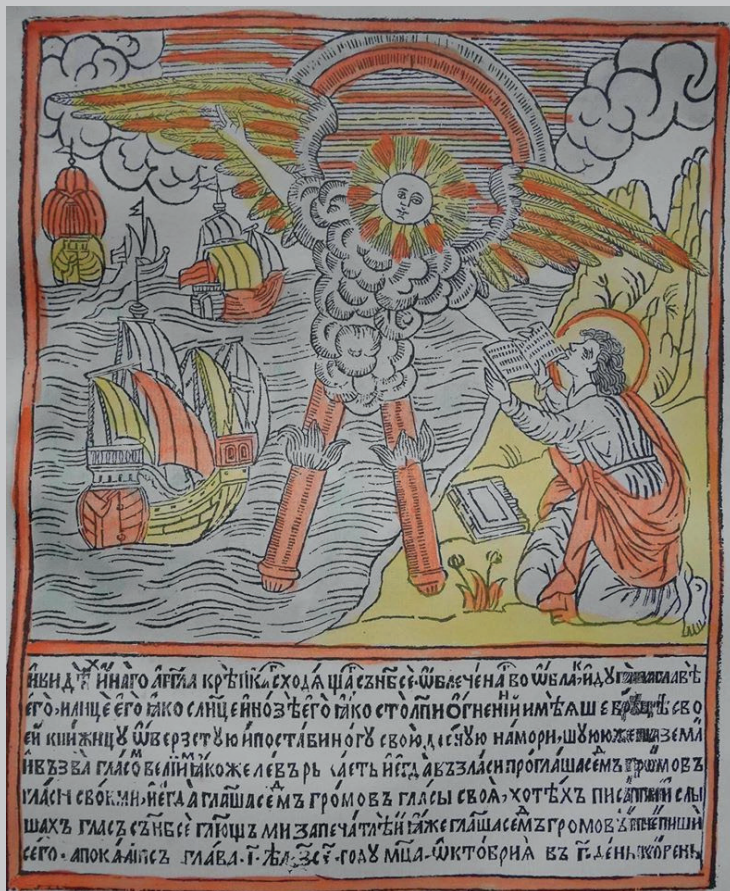 И҆ видѣ́хъ и҆на́го а҆́гг҃ла крѣпка сходѧща сънб҃се ѡ҆блечена во ѡ҆бла и҆ дуга главѣ
его и лице е҆гѡ ꙗ҆ко слн҃це и҆ нозѣ е҆го ꙗ҆ко столпи ѻ҆гнени и҆ имѣѧше в руцѣ сво
ей книжицу ѿверзстую и҆ постави ногу свою десную на мори шуюю же на земли
и҆ възва гласо велїи ꙗ҆коже левъ рыкаетъ и҆ егда възласи проглашаседмъ громовъ
гласы своими и҆ егда глашаседмъ громовъ гласы своя хотѣхъ писати и слы
шахъ гласъ сънб҃се гл҃ющъ ми запечатлѣй ꙗ҆же глашаседмъ громовъ и не пиши
сего апокалипсъ глава і҃ году мц҃а ѡ҆ктобрия въ г҃ день корень